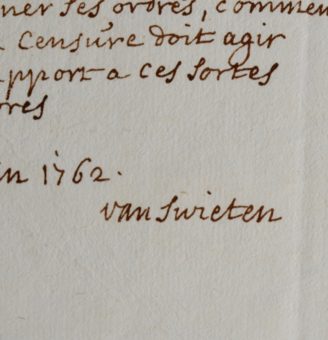 ner ses ordres, commen
censure doit agir
pport a ces sortes
res
in 1762.
van Swieten